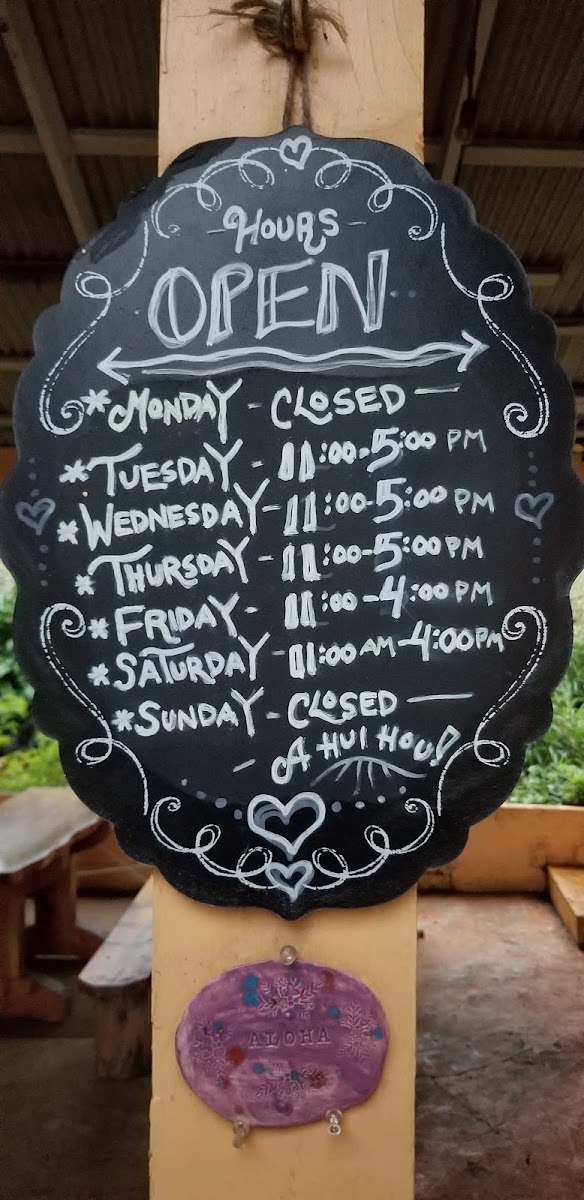 Hours
OPEN
*MONDAY - CLOSED —
*TUESDAY - 11:00-5:00 PM
*WEDNESDAY - 11:00-5:00 PM
*THURSDAY - 11:00-5:00 PM
*FRIDAY - 11:00-4:00 PM
*SATURDAY - 11:00 AM-4:00 PM
*SUNDAY - CLOSED —
- A HUI HOU!
ALOHA